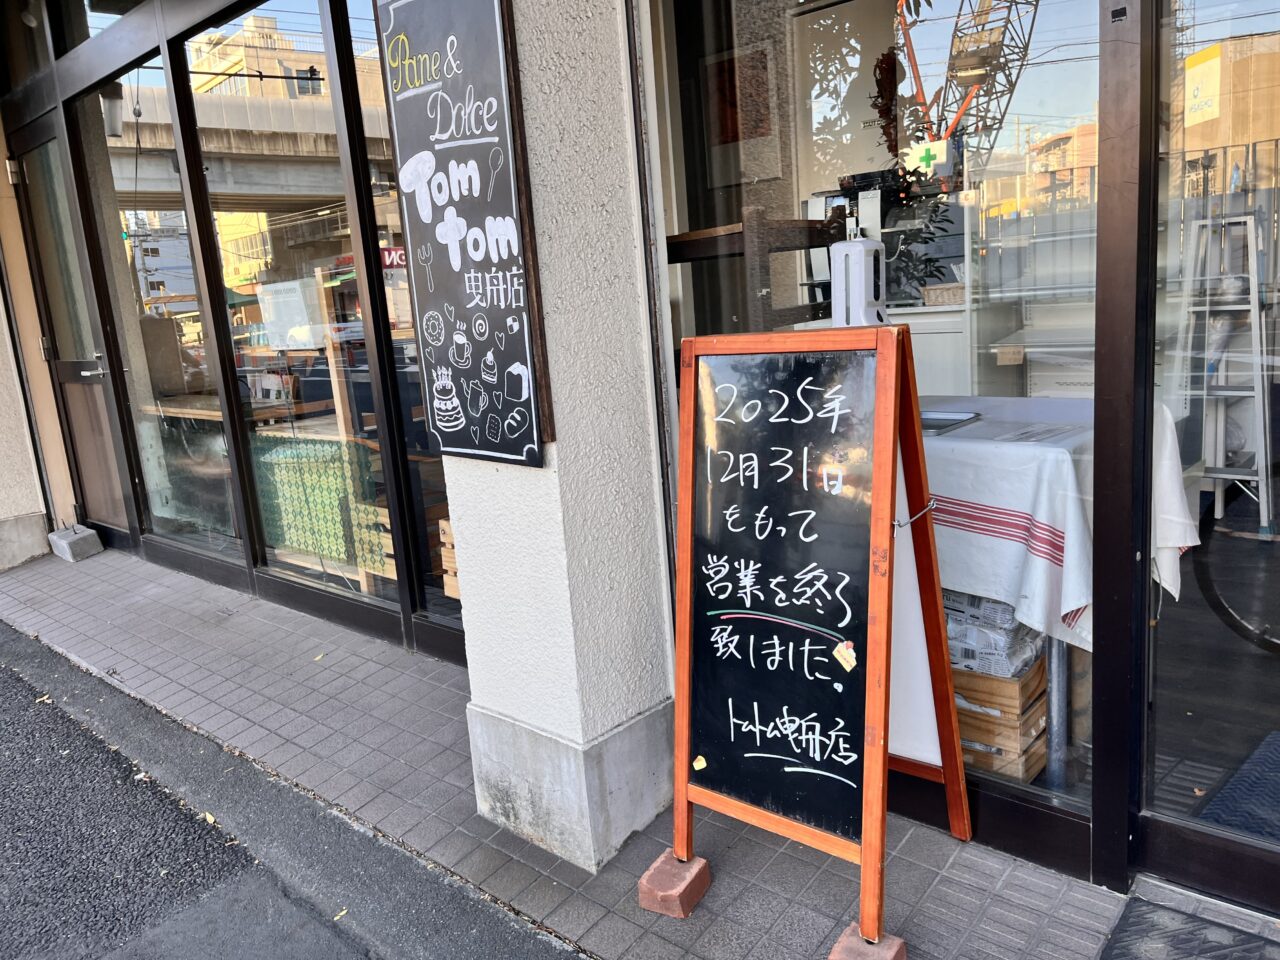 Pane &
Dolce
Tom
Tom
曳舟店
2025年
12月31日
をもって
営業を終了
致しました。
トムトム曳舟店